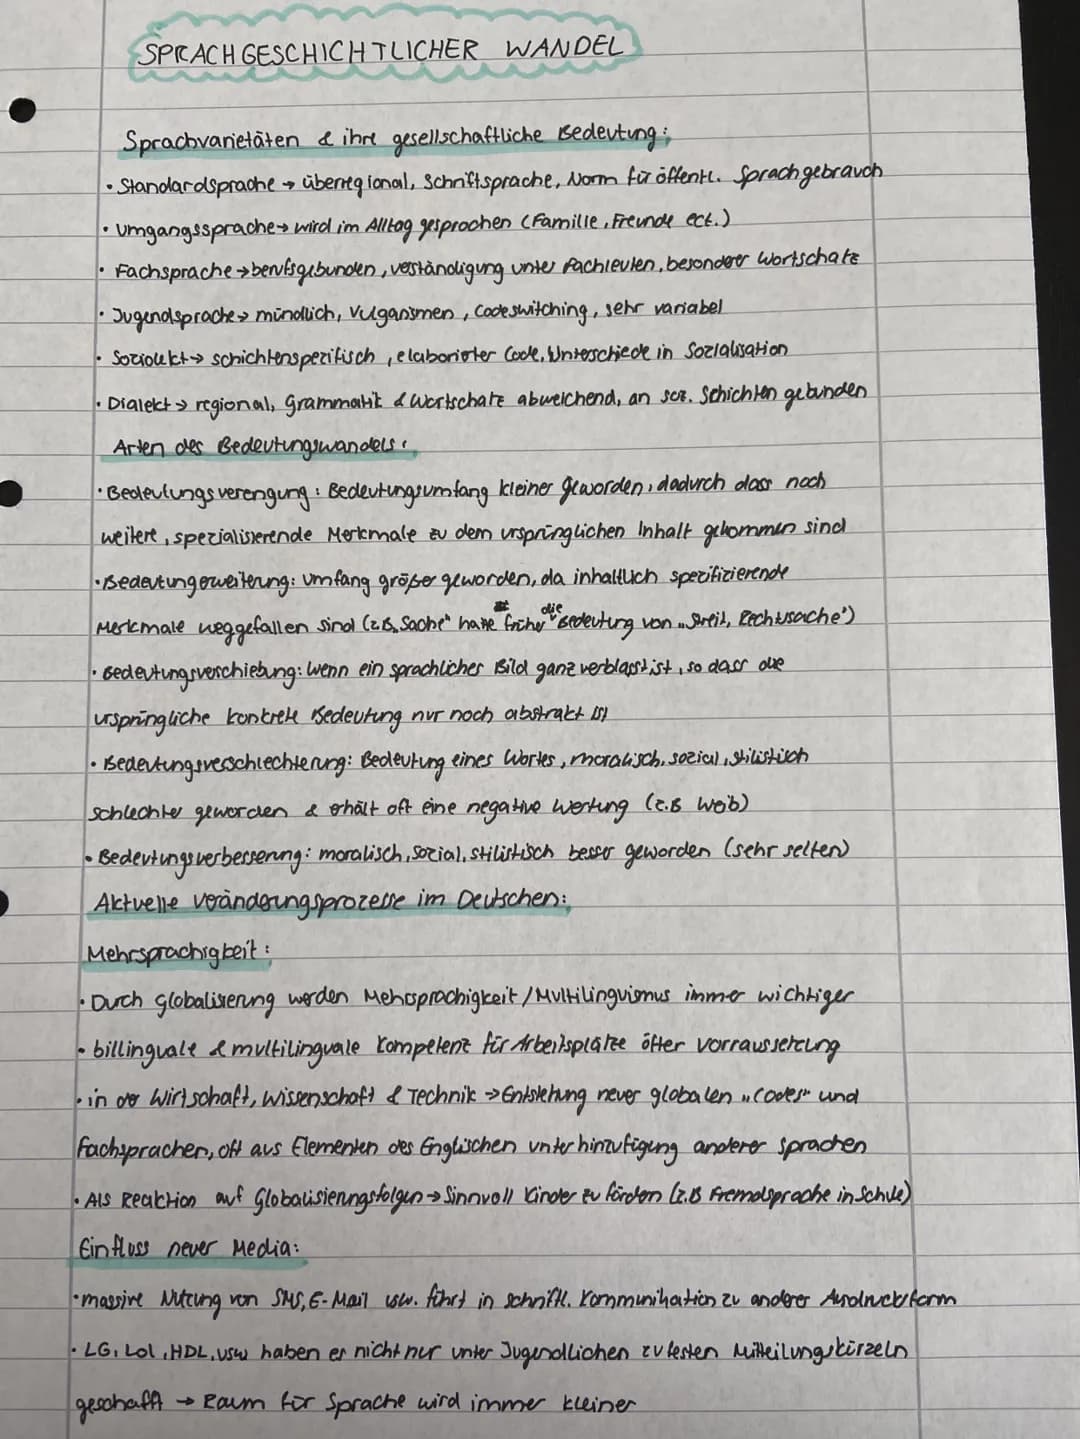 SPRACHGESCHICHTLICHER WANDEL
Sprachvarietäten & ihre gesellschaftliche Bedeutung:
• Standardsprache → überregional, Schriftsprache, Norm für öffentl. Sprachgebrauch
• Umgangssprache → wird im Alltag gesprochen (Familie, Freunde ect.)
• Fachsprache → berufsgebunden, verständigung unter Fachleuten, besonderer Wortschatz
• Jugendsprache → mündlich, Vulgarismen, Codeswitching, sehr variabel
• Soziolekt → schichtenspezifisch, elaborierter Code, Unterschiede in Sozialisation
• Dialekt → regional, Grammatik & Wortschatz abweichend, an soz. Schichten gebunden
Arten des Bedeutungswandels:
• Bedeutungsverengung: Bedeutungsumfang kleiner geworden, dadurch dass noch
weitere, spezialisierende Merkmale zu dem ursprünglichen Inhalt gekommen sind
• Bedeutungerweiterung: Umfang größer geworden, da inhaltlich spezifizierende
Merkmale weggefallen sind (z.B. „Sache" hatte früher die Bedeutung von „Streit, Rechtssache")
• Bedeutungsverschiebung: Wenn ein sprachliches Bild ganz verblasst ist, so dass die
ursprüngliche konkrete Bedeutung nur noch abstrakt ist
• Bedeutungsverschlechterung: Bedeutung eines Wortes, moralisch, sozial, stilistisch
schlechter geworden & erhält oft eine negative Wertung (z.B Weib)
• Bedeutungsverbesserung: moralisch, sozial, stilistisch besser geworden (sehr selten)
Aktuelle veränderungsprozesse im Deutschen:
Mehrsprachigkeit:
• Durch Globalisierung werden Mehrsprachigkeit/Multilinguismus immer wichtiger
• billinguale & multilinguale Kompetenz für Arbeitsplätze öfter vorraussetzung
• in der Wirtschaft, Wissenschaft & Technik → Entstehung neuer globalen „Codes" und
Fachsprachen, oft aus Elementen des Englischen unter hinzufügung anderer sprachen
• Als Reaktion auf Globalisierungsfolgen → Sinnvoll Kinder zu fördern (z.B Fremdsprache in Schule)
Einfluss neuer Media:
• massive Nutzung von SMS, E-Mail usw. führt in schriftl. Kommunikation zu anderer Ausdrucksform
• LG, Lol, HDL, usw haben es nicht nur unter Jugendlichen zu festen Mitteilungskürzeln
geschafft → Raum für Sprache wird immer kleiner